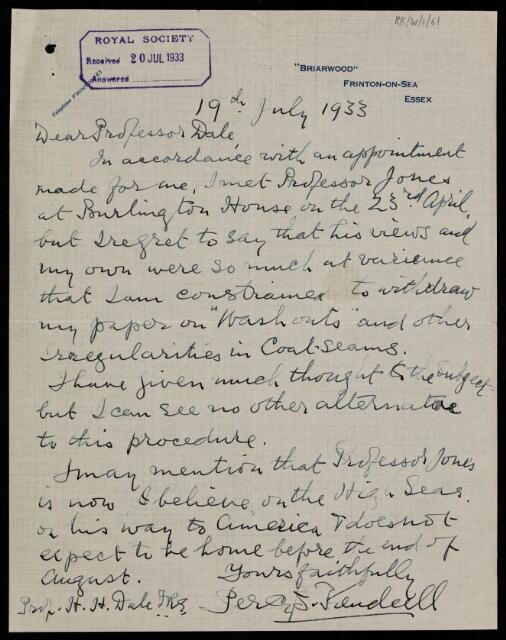 RR/W/1/61
ROYAL SOCIETY
Received 20 JUL 1933
Answered
"BRIARWOOD"
FRINTON-ON-SEA
ESSEX
19th July 1933
Dear Professor Dale
In accordance with an appointment
made for me, I met Professor Jones
at Burlington House on the 23rd April,
but I regret to say that his views and
my own were so much at varience
that I am constrained to withdraw
my paper on "Wash outs" and other
Irregularities in Coal-seams.
I have given much thought to the subject
but I can see no other alternative
to this procedure.
I may mention that Professor Jones
is now, I believe, on the High Seas
on his way to America & does not
expect to be home before the end of
August. Yours faithfully
Prof. H. H. Dale Percy F. Kendall